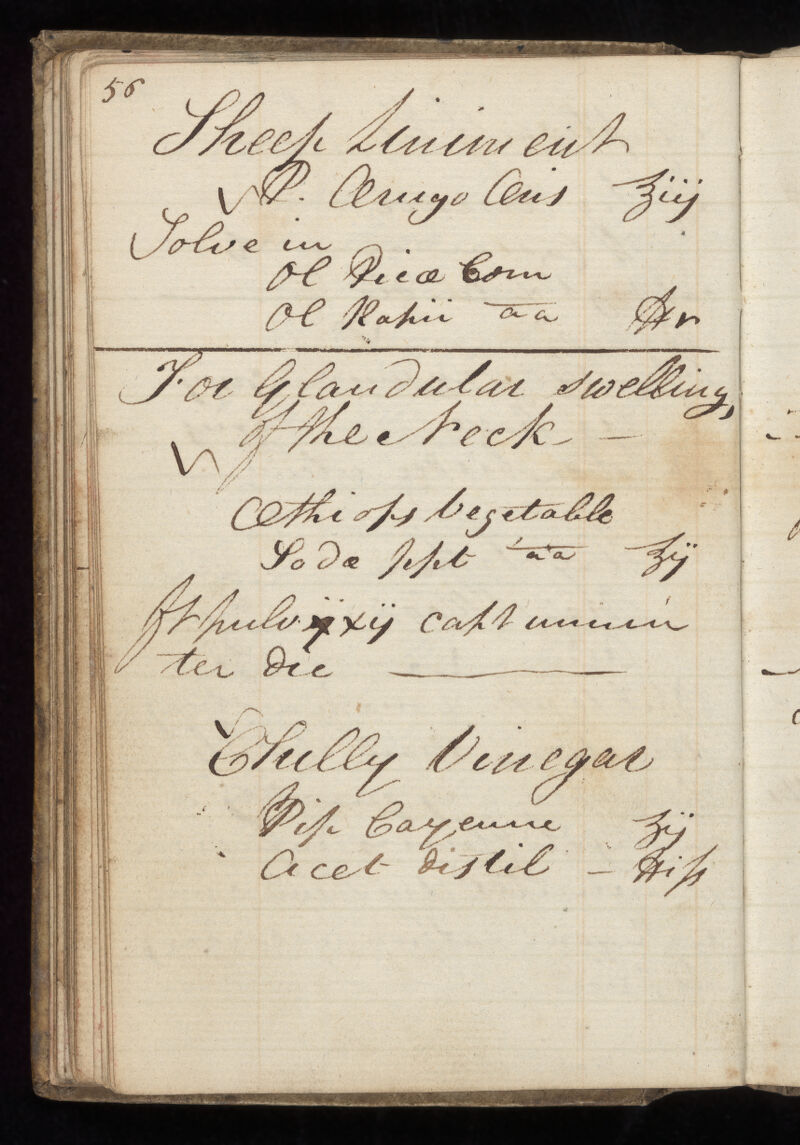 56
Sheep Liniment
P. Ærugo Æris ʒiij
Solve in
Ol Picæ Com
Ol Rapii aa ℔v
For Glandular swelling,
of the Neck —
Æthiops Vegetable
Sodæ ppt aa ʒij
ft pulv xij capt unum
ter die
Chilly Vinegar
Pip Cayenne ʒij
Acet distil — ℔iſs